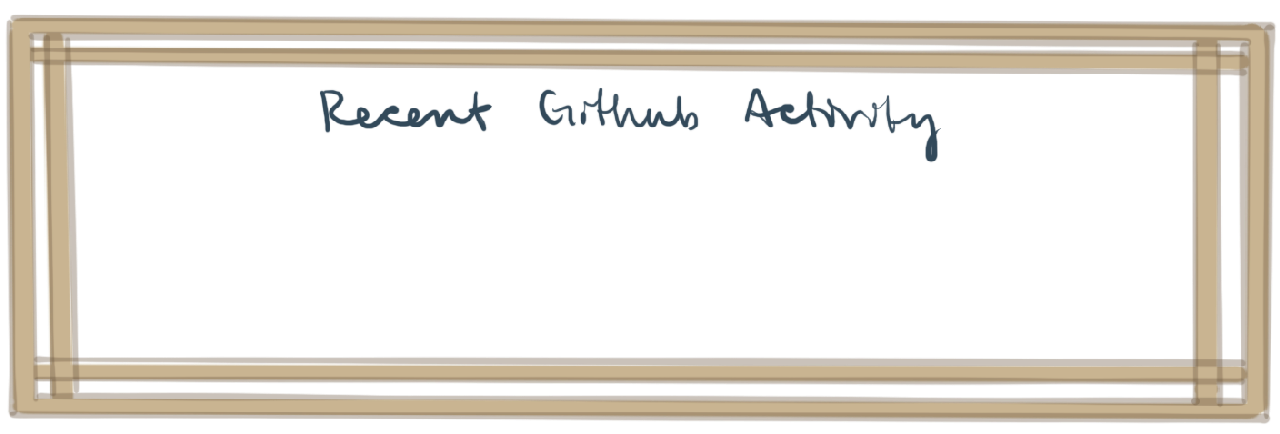 Recent Github Activity